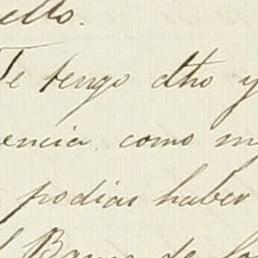 ello.
Te tengo dho y
encia, como m
podias haber
l Banco de lo